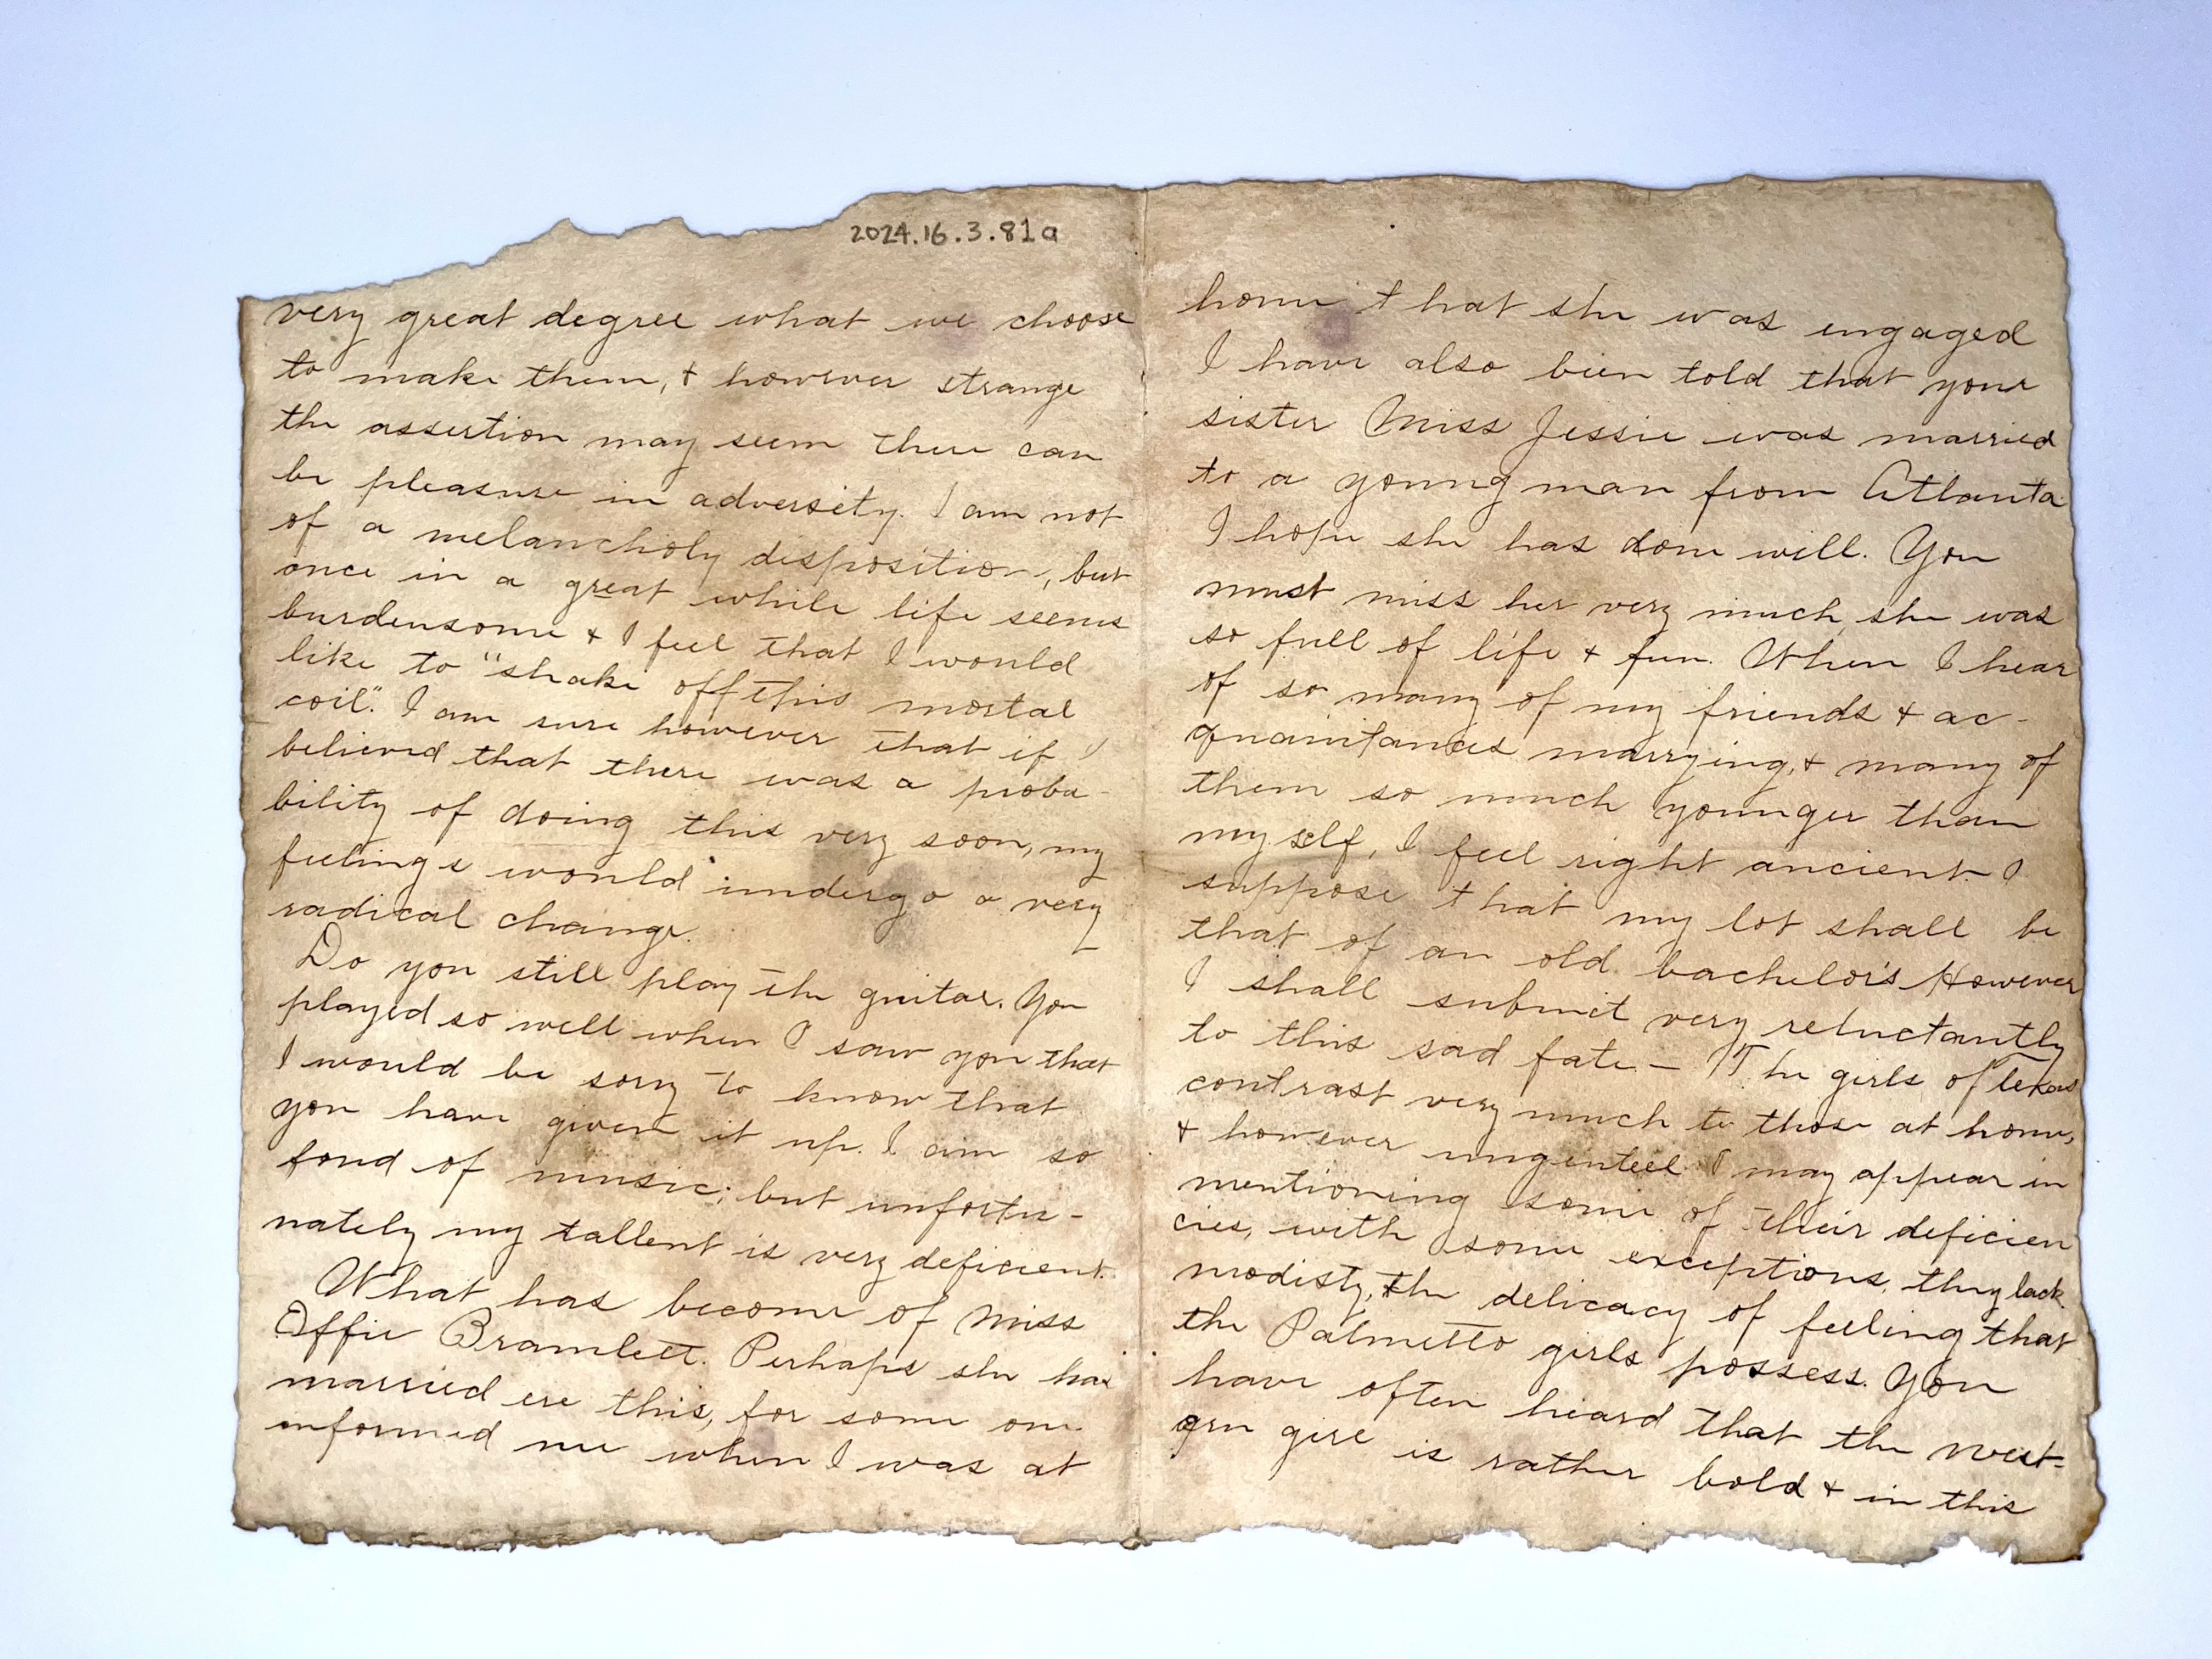 2024.16.3.81a
very great degree what we choose
to make them, & however strange
the assertion may seem there can
be pleasure in adversity. I am not
of a melancholy disposition, but
once in a great while life seems
burdensome & I feel that I would
like to "shake off this mortal
coil". I am sure however that if I
believed that there was a proba-
bility of doing this very soon, my
feelings would undergo a very
radical change.
Do you still play the guitar. You
played so well when I saw you that
I would be sorry to know that
you have given it up. I am so
fond of music; but unfortu-
nately my tallent is very deficient.
What has become of Miss
Offie Bramlett. Perhaps she has
married ere this, for some one
informed me when I was at
home that she was engaged
I have also been told that your
sister Miss Jessie was married
to a young man from Atlanta
I hope she has done well. You
must miss her very much, she was
so full of life & fun. When I hear
of so many of my friends & ac-
quaintances marrying, & many of
them so much younger than
my self, I feel right ancient. I
suppose that my lot shall be
that of an old bachelor's However
I shall submit very reluctantly
to this sad fate. — The girls of Texas
contrast very much to those at home,
& however ungenteel I may appear in
mentioning some of their deficien
cies, with some exceptions, they lack
modisty, the delicacy of feeling that
the Palmetto girls possess. You
have often heard that the west-
ern girl is rather bold & in this